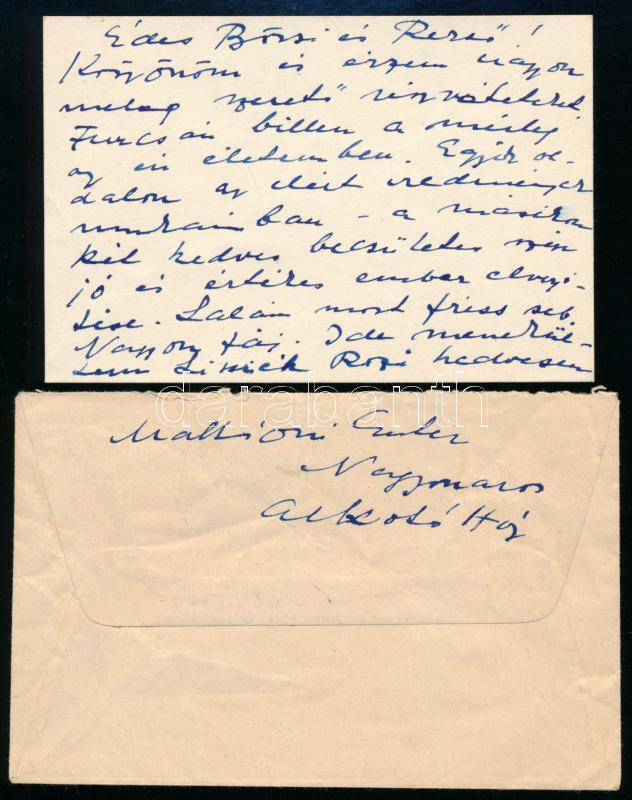 Édes Bözsi és Rezső!
Köszönöm és érzem nagyon
meleg szerető részvéteteket.
Furcsán billen a mérleg
az én életemben. Egyik ol-
dalon az elért eredmények
munkáimban - a másikon
két kedves becsületes
jó és értékes ember elveszí-
tése. Lalám most friss seb.
Nagyon fáj. Ide menekül-
tem Rozi kedvesem
darabanth
Mattioni Eszter
Nagymaros
Alkotó Ház